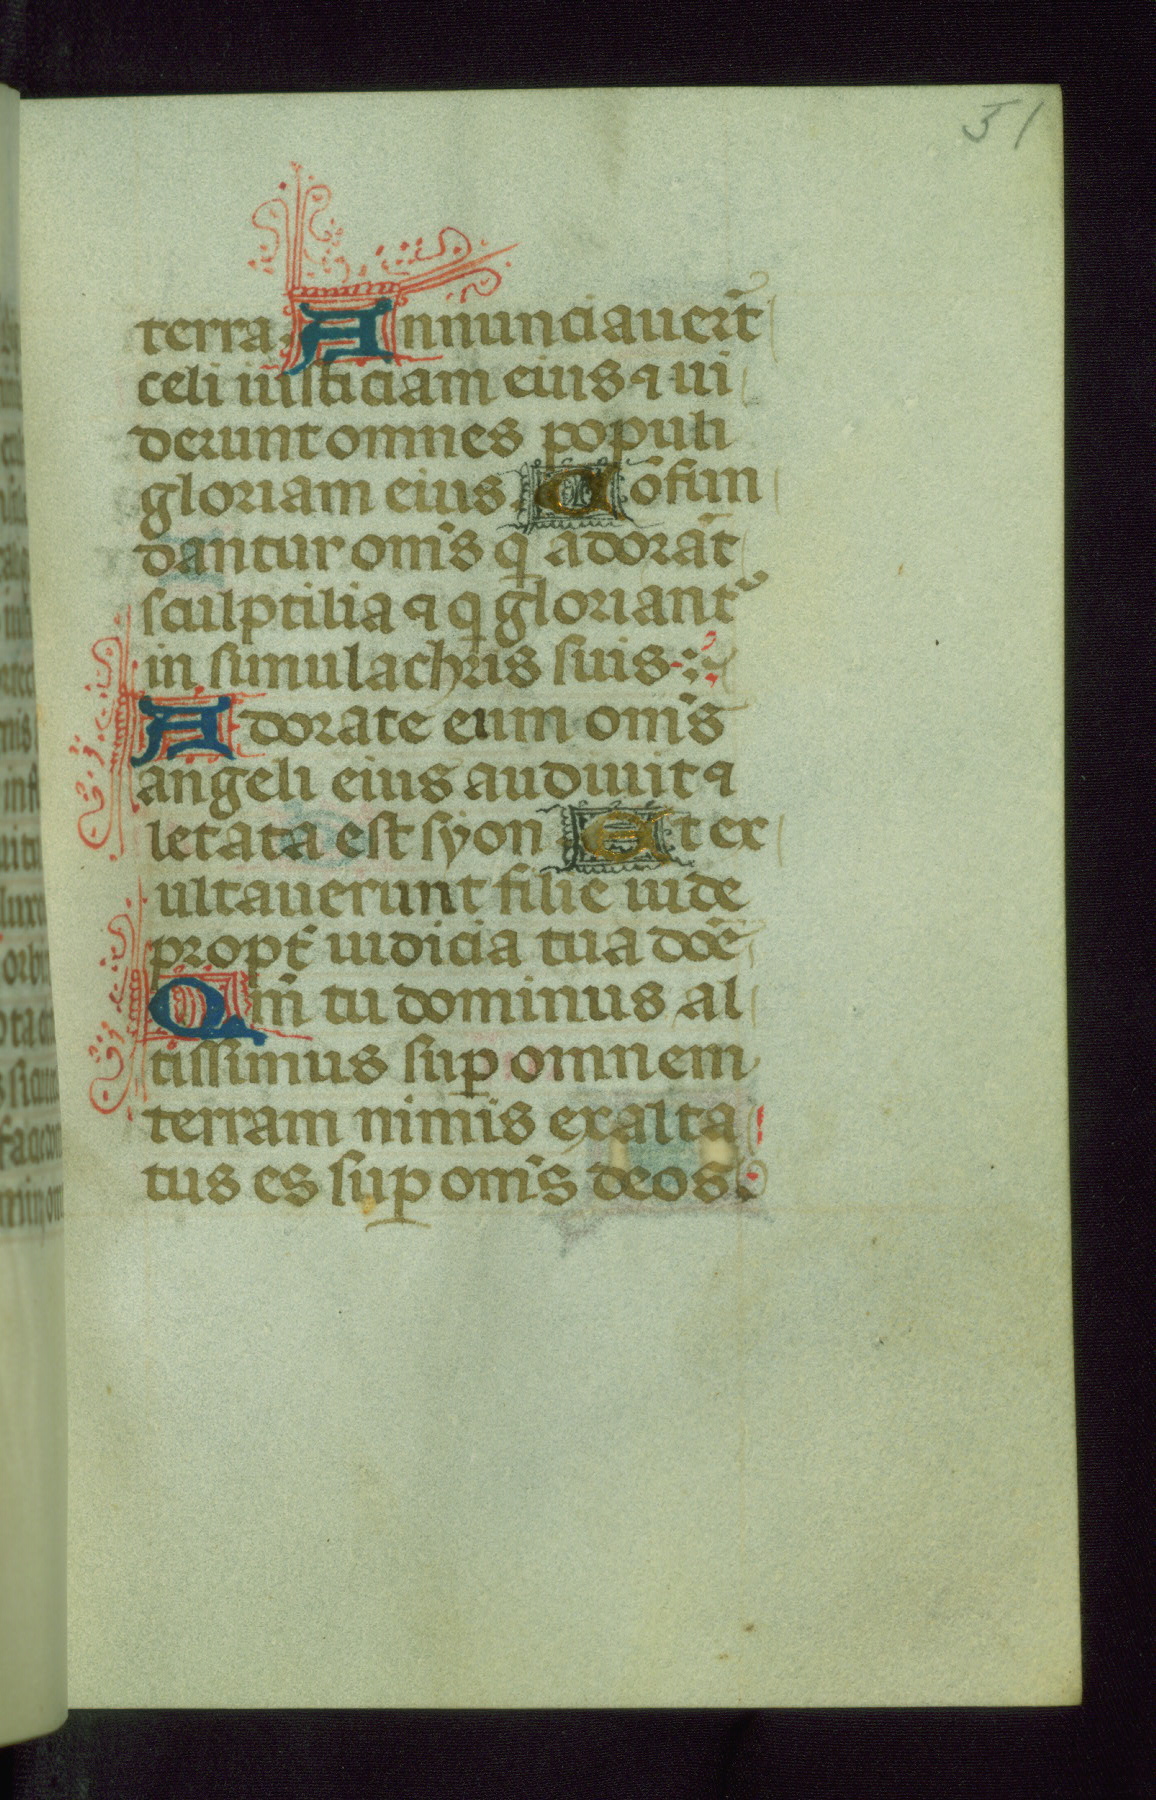 31
terra. Annunciauerūt
celi iusticiam eius ⁊ ui
derunt omnes populi
gloriam eius. Cōfun
dantur om̄s q̄ adorāt
sculptilia ⁊ q̄ gloriant᷑
in simulachris suis:
Adorate eum om̄s
angeli eius audiuit ⁊
letata est syon. Et ex
ultauerunt filie iude
propt̄ iudicia tua dn̄e
Qm̄ tu dominus al
tissimus suꝑ omnem
terram nimis exalta
tus es suꝑ om̄s deos.